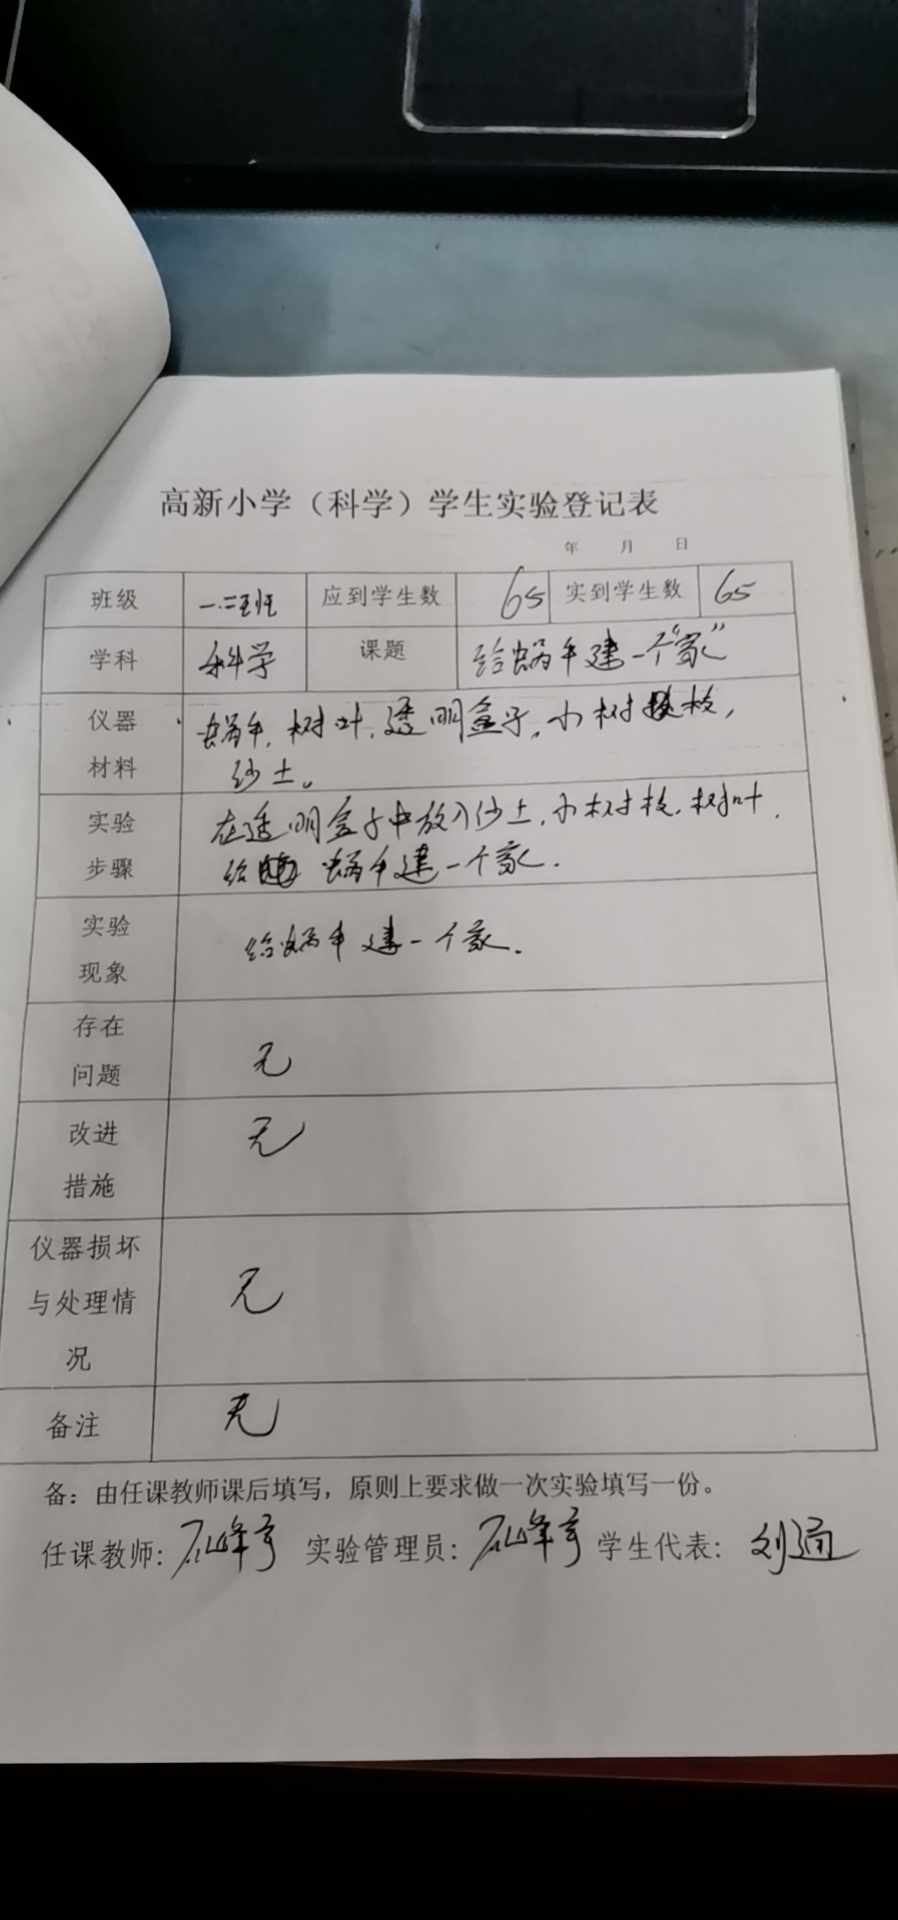 高新小学（科学）学生实验登记表
年 月 日
班级 一.二班 应到学生数 65 实到学生数 65
学科 科学 课题 给蜗牛建一个“家”
仪器 蜗牛，树叶，透明盒子，小树枝，
材料 沙土。
实验 在透明盒子中放入沙土，小树枝，树叶，
步骤 给 蜗牛建一个家.
实验
现象 给蜗牛建一个家.
存在
问题 无
改进 无
措施
仪器损坏
与处理情 无
况
备注 无
备：由任课教师课后填写，原则上要求做一次实验填写一份。
任课教师： 实验管理员： 学生代表：刘通